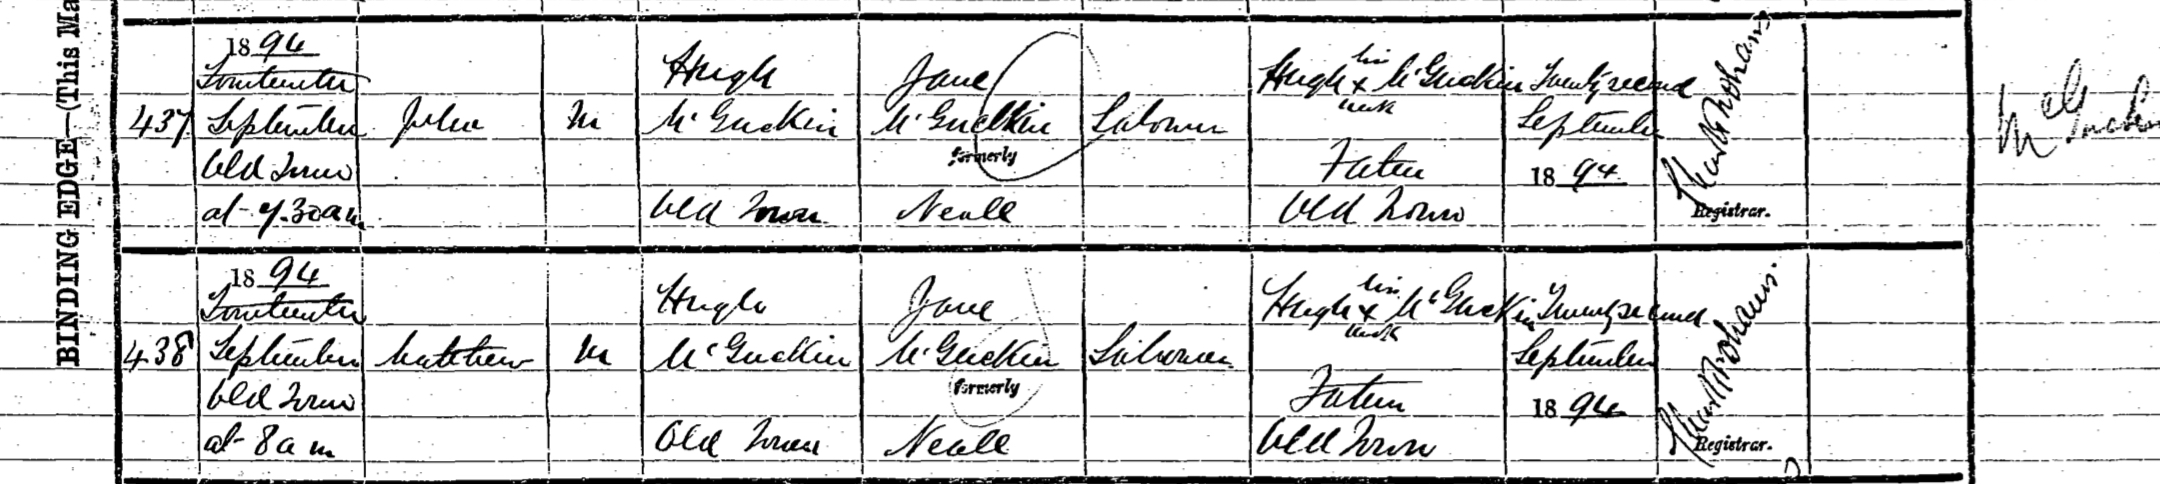 BINDING EDGE—(This Ma
1894
Fourteenth
September
Old Town
at 7.30 a m
437
John
M
Hugh
McGuckin
Old Town
Jane
McGuckin
formerly
Neall
Labourer
Hugh his x mark McGuckin
Father
Old Town
Twenty second
September
1894
Registrar.
McGuckin
1894
Fourteenth
September
Old Town
at 8 a m
438
Matthew
M
Hugh
McGuckin
Old Town
Jane
McGuckin
formerly
Neall
Labourer
Hugh his x mark McGuckin
Father
Old Town
Twenty second
September
1894
Registrar.